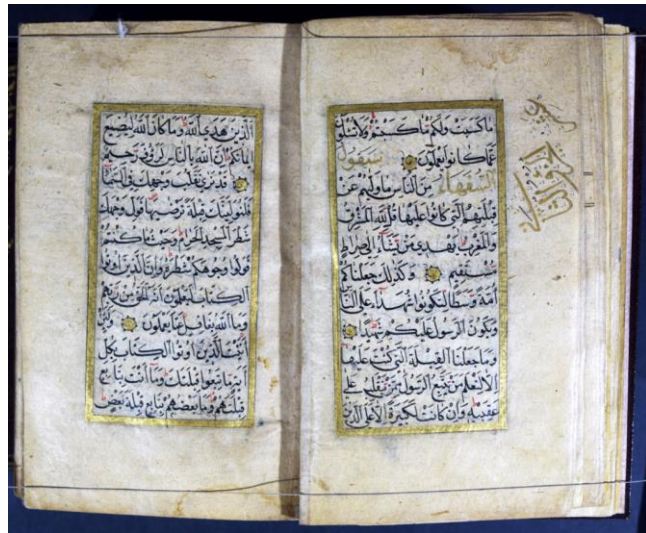 ما كسبت ولكم ما كسبتم ولا تسئلون
عما كانوا يعملون سيقول
السفهاء من الناس ما وليهم عن
قبلتهم التي كانوا عليها قل لله المشرق
والمغرب يهدي من يشاء الى صراط
مستقيم وكذلك جعلناكم
امة وسطا لتكونوا شهداء على الناس
ويكون الرسول عليكم شهيدا
وما جعلنا القبلة التي كنت عليها
الا لنعلم من يتبع الرسول ممن ينقلب على
عقبيه وان كانت لكبيرة الا على الذين
الذين هدى الله وما كان الله ليضيع
ايمانكم ان الله بالناس لرؤف رحيم
قد نرى تقلب وجهك في السماء
فلنولينك قبلة ترضيها فول وجهك
شطر المسجد الحرام وحيث ما كنتم
فولوا وجوهكم شطره وان الذين اوتوا
الكتاب ليعلمون انه الحق من ربهم
وما الله بغافل عما يعملون ولئن
اتيت الذين اوتوا الكتاب بكل
اية ما تبعوا قبلتك وما انت بتابع
قبلتهم وما بعضهم بتابع قبلة بعض